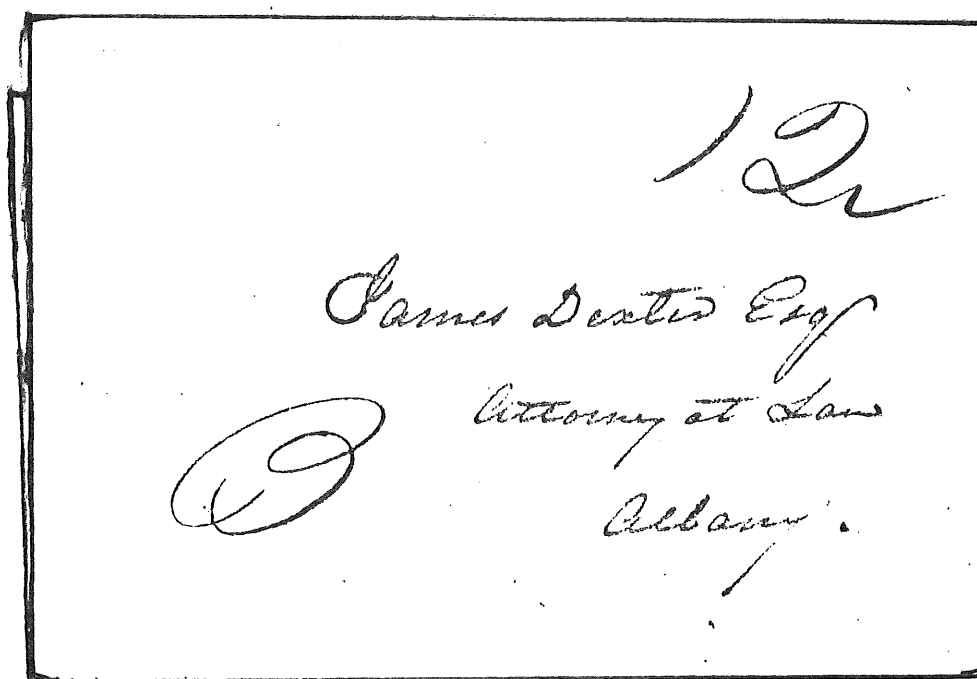 12
James Dexter Esq
Attorney at Law
Albany.